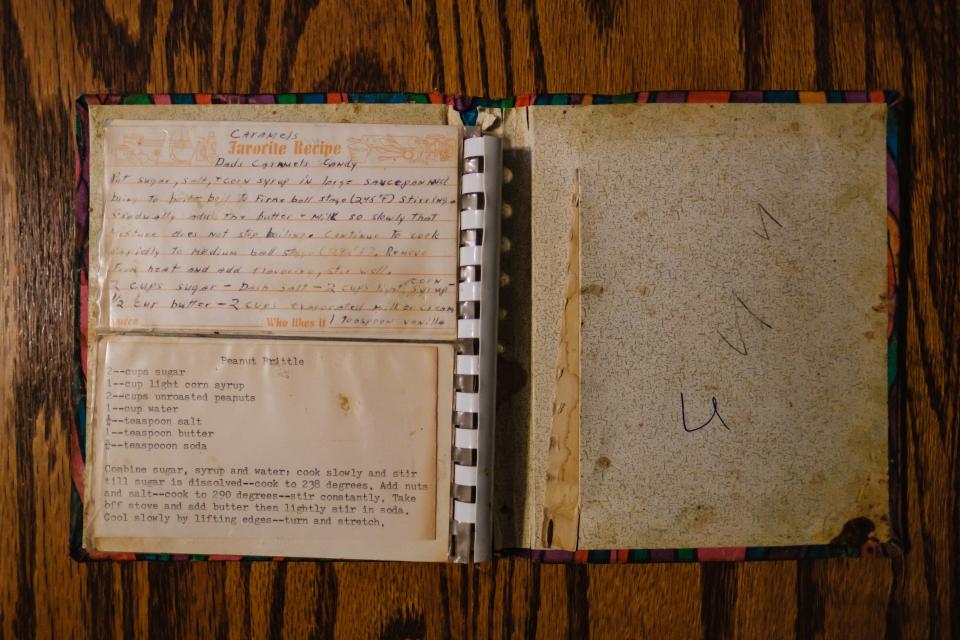 Caramels
Favorite Recipe
Dads Caramels Candy
Put sugar, salt, + corn syrup in large saucepan and
bring to boil to firm ball stage (245°F) stirring.
Gradually add the butter + milk so slowly that
mixture does not stop boiling. Continue to cook
rapidly to medium ball stage. Remove
from heat and add flavoring, stir well.
2 cups sugar - Dash salt - 2 cups light corn syrup -
1/2 cup butter - 2 cups evaporated milk or cream
Who likes it 1 teaspoon vanilla
Peanut Brittle
2--cups sugar
1--cup light corn syrup
2--cups unroasted peanuts
1--cup water
--teaspoon salt
1--teaspoon butter
--teaspooon soda
Combine sugar, syrup and water; cook slowly and stir
till sugar is dissolved--cook to 238 degrees. Add nuts
and salt--cook to 290 degrees--stir constantly. Take
off stove and add butter then lightly stir in soda.
Cool slowly by lifting edges--turn and stretch.